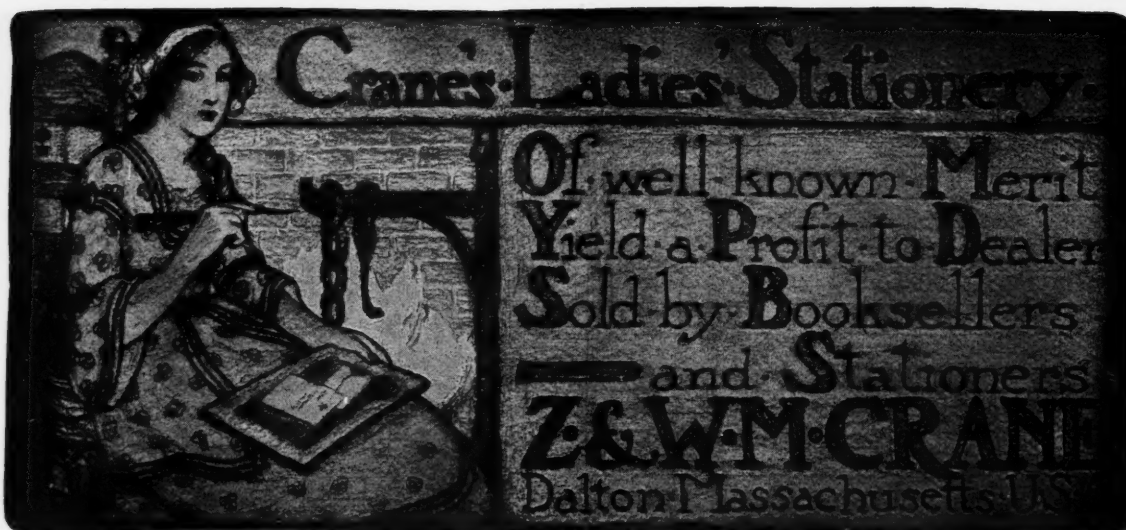 Crane's·Ladies'·Stationery·
Of·well·known·Merit
Yield·a·Profit·to·Dealer
Sold·by·Booksellers
and·Stationers
Z·&·W·M·CRANE
Dalton·Massachusetts·U.S.